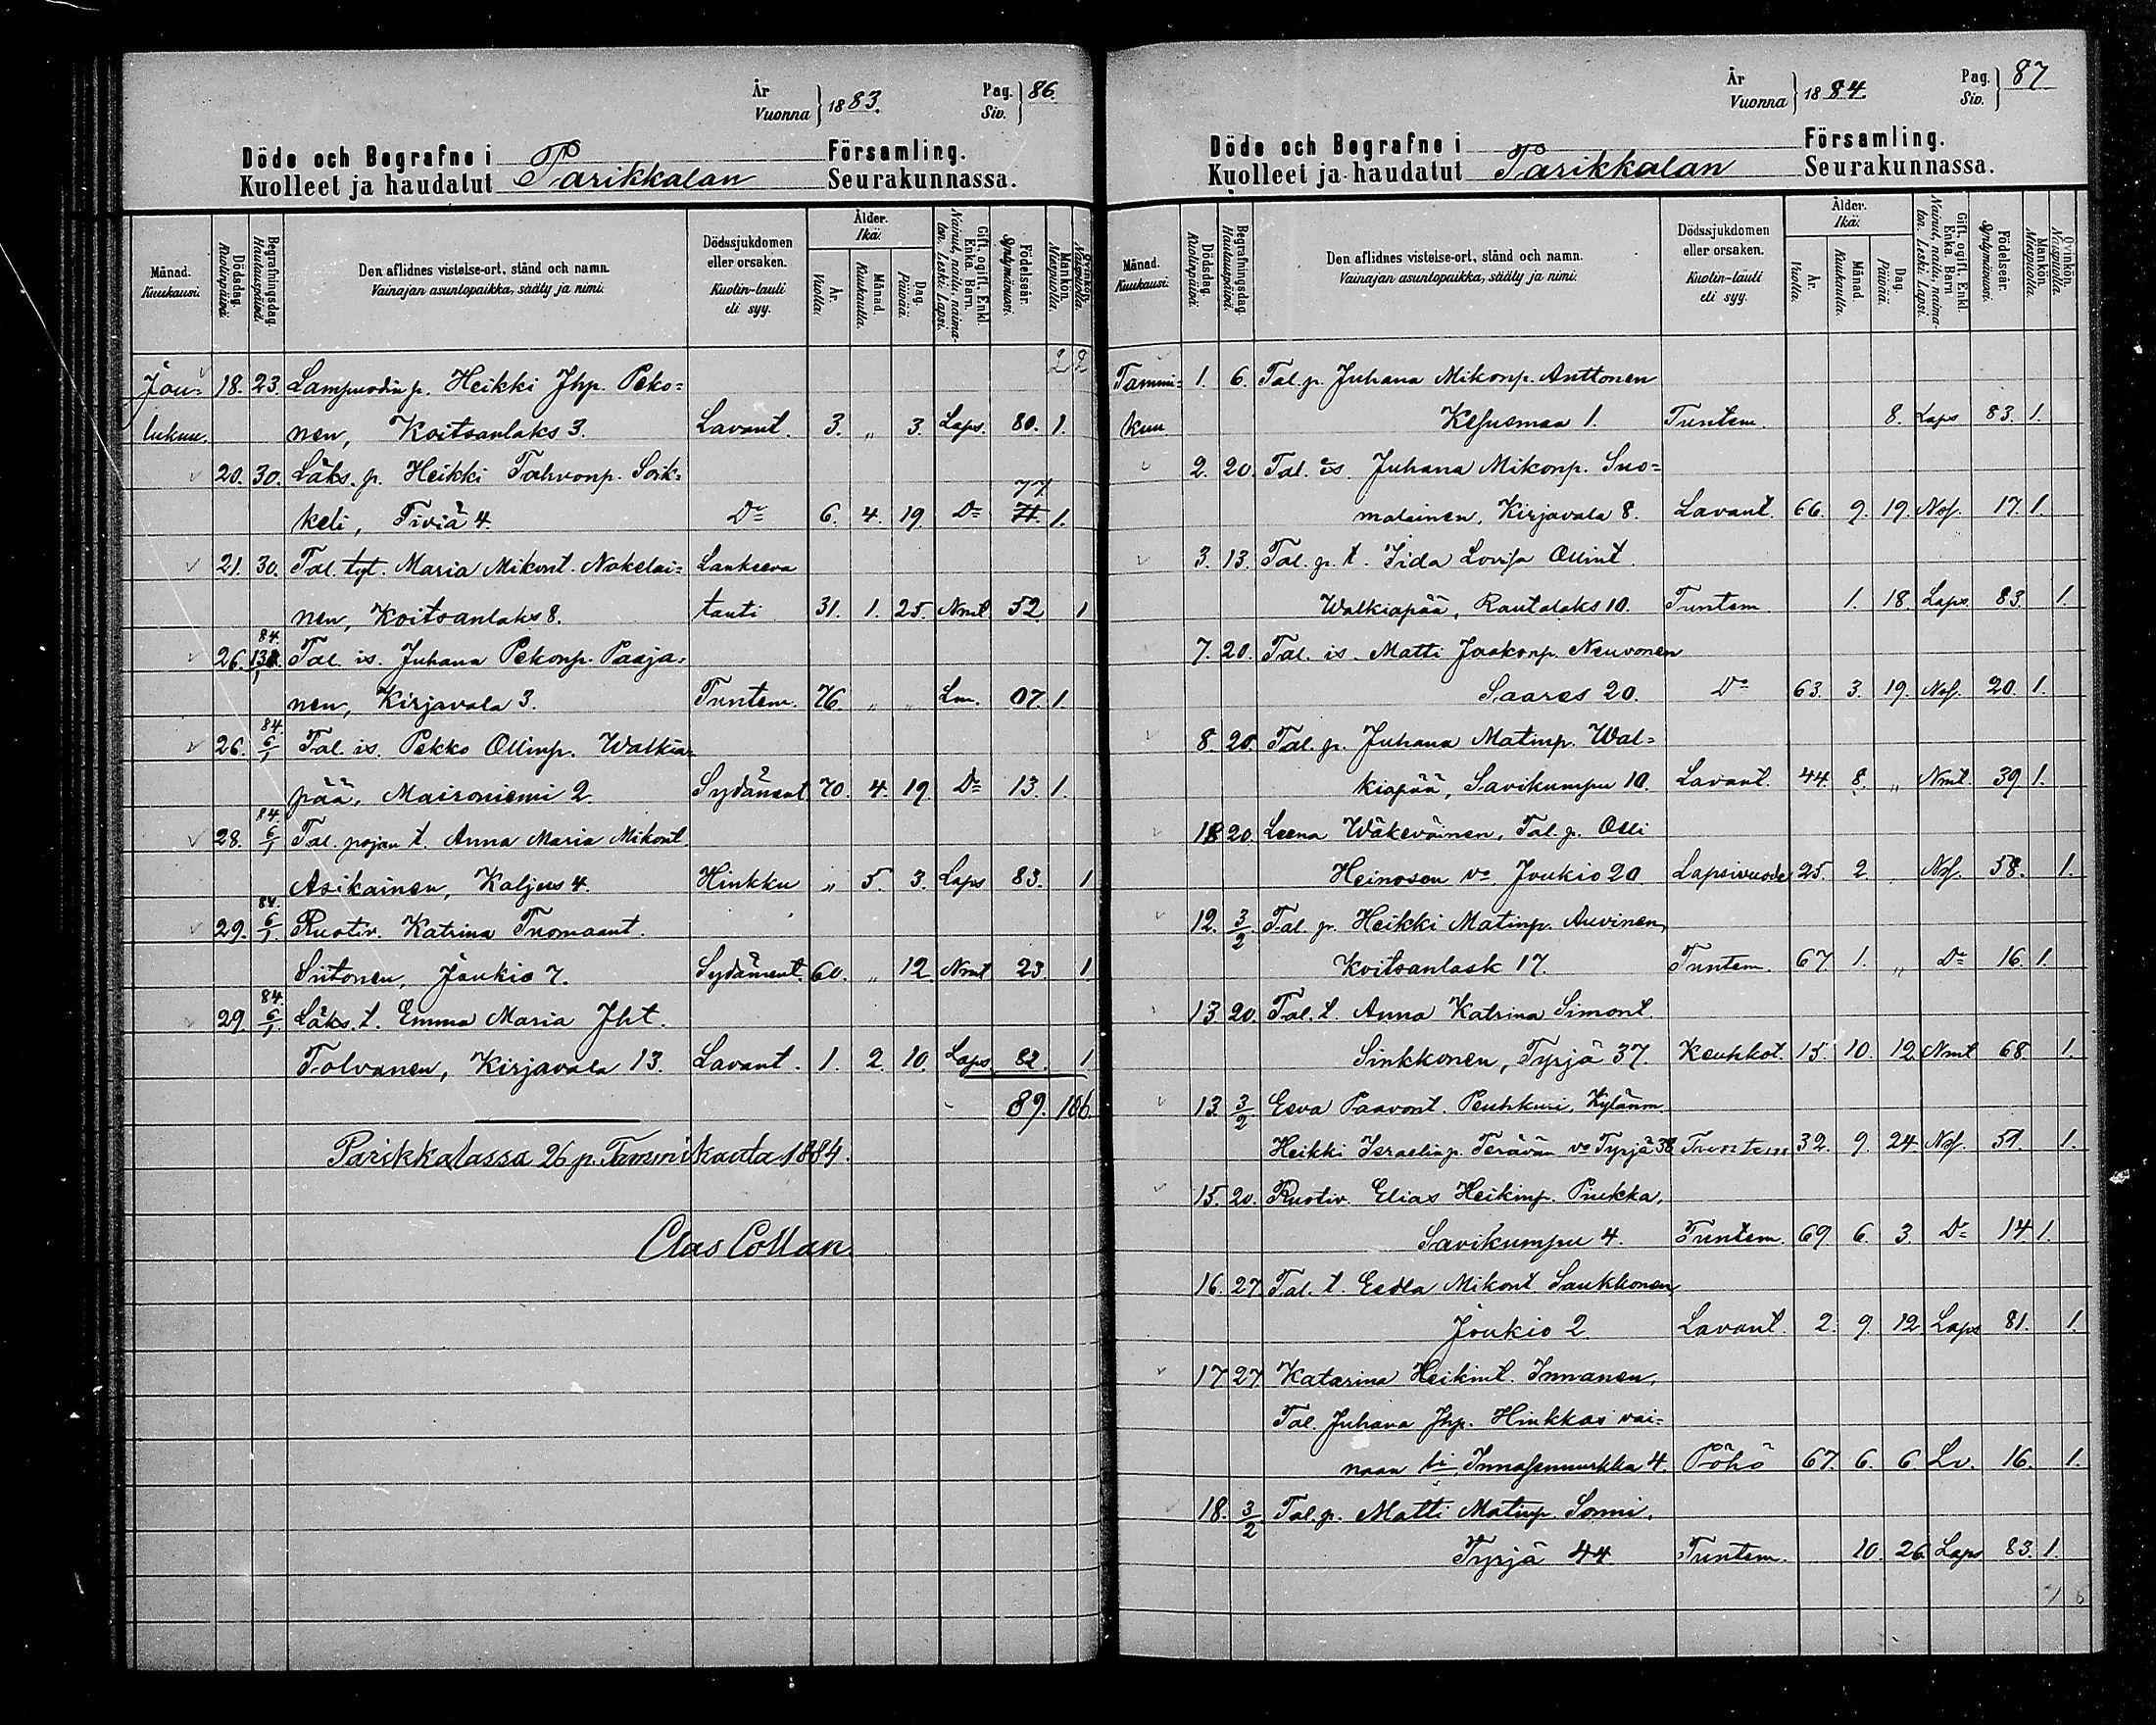 År
Vuonna } 1883. Pag. Siv. } 86.
Döde och Begrafne i Församling.
Kuolleet ja haudatut Parikkalan Seurakunnassa.
Månad. Kuukausi. Dödsdag. Kuolinpäivä. Begrafningsdag. Hautauspäivä. Den aflidnes vistelse-ort, stånd och namn. Vainajan asuntopaikka, sääty ja nimi. Dödssjukdomen eller orsaken. Kuolin-tauti eli syy. Ålder. Ikä. År. Vuotta. Månad. Kuukautta. Dag. Päivää. Gift, ogift, Enkl. Enka. Barn. Nainut, naitu, naimaton. Leski. Lapsi. Födelseår. Syntymävuosi. Mankön. Miespuolta. Qvinkön. Naispuolta.
2 2
Jou= 18. 23. Lampuodin p. Heikki Jhp. Peko=
lukuu. nen, Koitsanlaks 3. Lavant. 3. „ 3. Laps. 80. 1.
20. 30. Läks. p. Heikki Tahvonp. Soik=
77.
keli, Tiviä 4. Do 6. 4. 19 Do 71. 1.
21. 30. Tal. tyt. Maria Mikont. Nokelai= Lankeeva
nen, Koitsanlaks 8. tauti 31. 1. 25. Nmt 52. 1
84.
26. 13/1 Tal. is. Juhana Pekonp. Paaja=
nen, Kirjavala 3. Tuntem. 76. „ „ Lm. 07. 1.
84.
26. 6/1 Tal. is. Pekko Ollinp. Walkia=
pää, Maironiemi 2. Sydänent 70. 4. 19. Do 13. 1.
84.
28. 6/1 Tal. pojan t. Anna Maria Mikont.
Asikainen, Kaljus 4. Hinkku „ 5. 3. Laps 83. 1
84.
29. 6/1. Ruotiv. Katrina Tuomaant.
Siitonen, Joukio 7. Sydäment. 60. „ 12. Nmt 23. 1
84.
29. 6/1. Läks. t. Emma Maria Jht.
Tolvanen, Kirjavala 13. Lavant. 1. 2. 10. Laps 82. 1
89. 106
Parikkalassa 26 p. Tammikuuta 1884.
Clas Collan.
År
Vuonna } 1884. Pag. Siv. } 87
Döde och Begrafne i Församling.
Kuolleet ja haudatut Parikkalan Seurakunnassa.
Månad. Kuukausi. Dödsdag. Kuolinpäivä. Begrafningsdag. Hautauspäivä. Den aflidnes vistelse-ort, stånd och namn. Vainajan asuntopaikka, sääty ja nimi. Dödssjukdomen eller orsaken. Kuolin-tauti eli syy. Ålder. Ikä. År. Vuotta. Månad. Kuukautta. Dag. Päivää. Gift, ogift, Enkl. Enka. Barn. Nainut, naitu, naimaton. Leski. Lapsi. Födelseår. Syntymävuosi. Mankön. Miespuolta. Qvinkön. Naispuolta.
Tammi= 1. 6. Tal. p. Juhana Mikonp. Anttonen
kuu Kesusmaa 1. Tuntem. 8. Laps 83. 1.
2. 20. Tal. is. Juhana Mikonp. Suo=
malainen, Kirjavala 8. Lavant. 66. 9. 19. Naj. 17. 1.
3. 13. Tal. p. t. Iida Lovisa Ollint.
Walkiapää, Rautalaks 10. Tuntem 1. 18. Laps 83. 1.
7. 20. Tal. is. Matti Jaakonp. Neuvonen
Saares 20. Do 63. 3. 19. Naj. 20. 1.
8. 20. Tal. p. Juhana Matinp. Wal=
kiapää, Savikumpu 10. Lavant. 44. 8. „ Nmt. 39 1.
18 20. Leena Wäkeväinen, Tal. p. Olli
Heinosen vo. Joukio 20 Lapsivuode 25. 2. „ Naj. 58. 1.
12. 3/2 Tal. p. Heikki Matinp. Auvinen,
Koitsanlask 17. Tuntem. 67. 1. „ Do 16. 1.
13 20. Tal. t. Anna Katrina Simont.
Sinkkonen, Tyrjä 37. Keuhkot. 15. 10. 12. Nmt 68. 1.
13. 3/2 Eeva Paavont. Peuhkuri, Kylänm
Heikki Israelinp. Terävän vo Tyrjä 38 Tuntem 32. 9. 24. Naj. 51. 1.
15. 20. Ruotiv. Elias Heikinp. Piukka,
Savikumpu 4. Tuntem. 69. 6. 3. Do 14 1.
16. 27 Tal. t. Eedla Mikont Saukkonen,
Joukio 2 Lavant. 2. 9. 12. Laps 81. 1.
17 27 Katarina Heikint. Innanen,
Tal. Juhana Jhp. Hinkkas vai=
naan li Innasennurkka 4. Pöhö 67. 6. 6. Lv. 16. 1.
18. 3/2 Tal. p. Matti Matinp. Sonni,
Tyrjä 44 Tuntem. 10. 26. Laps 83. 1.
7 6